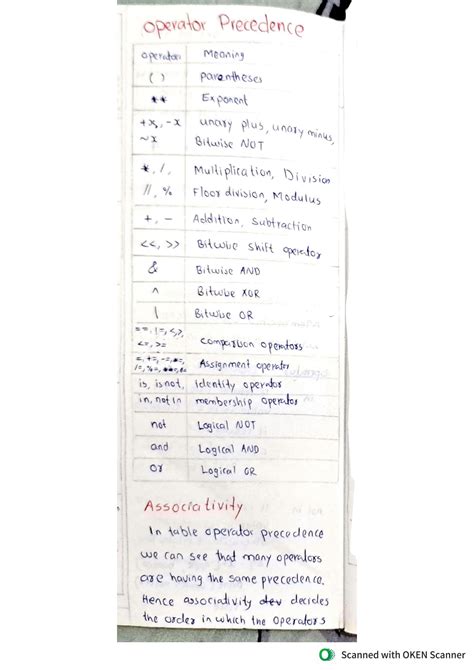 Operator Precedence
operator Meaning
( ) parentheses
** Exponent
+x, -x unary plus, unary minus,
~x Bitwise NOT
*, /, Multiplication, Division
//, % Floor division, Modulus
+, - Addition, Subtraction
<<, >> Bitwise shift operator
& Bitwise AND
^ Bitwise XOR
| Bitwise OR
==, !=, <, >,
<=, >= comparison operators
=, +=, -=, *=, Assignment operator
/=, %=,
is, is not, Identity operator
in, not in membership operator
not Logical NOT
and Logical AND
or Logical OR
Associativity
In table operator precedence
we can see that many operators
are having the same precedence.
Hence associativity decides
the order in which the operators
Scanned with OKEN Scanner